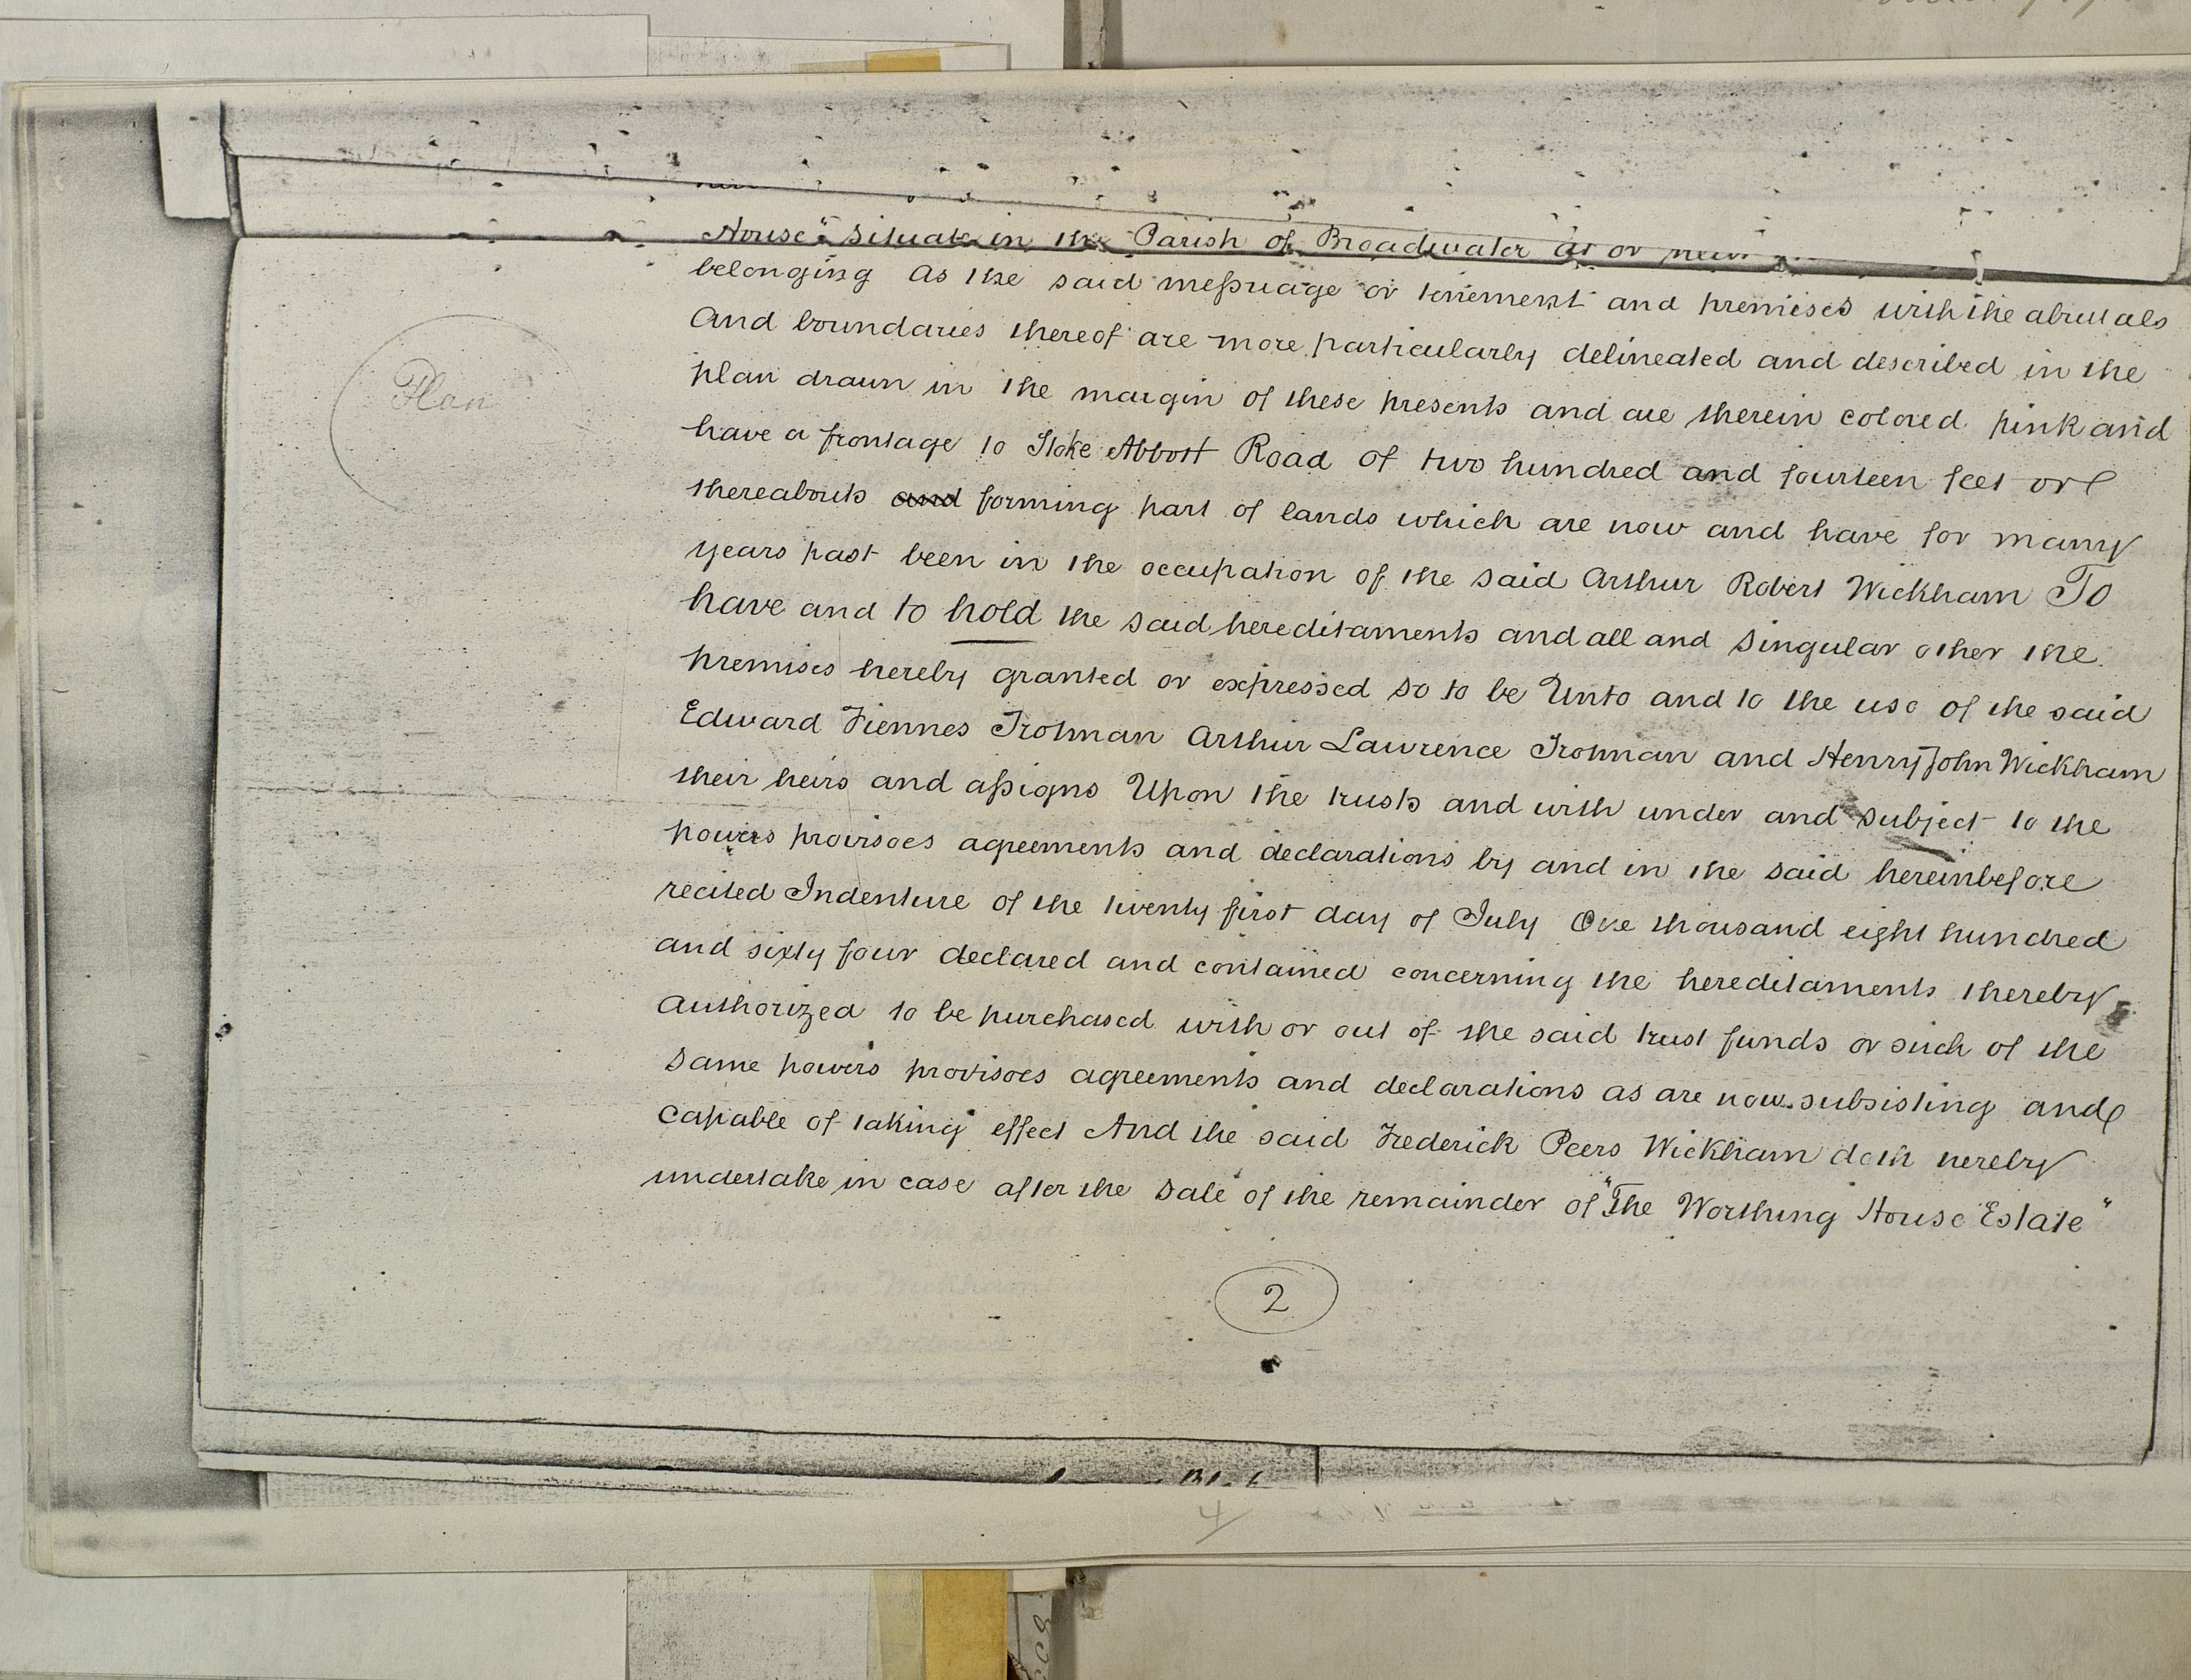 House" situate in the Parish of Broadwater at or near
belonging as the said messuage or tenement and premises with the abuttals
Plan
and boundaries thereof are more particularly delineated and described in the
plan drawn in the margin of these presents and are therein colored pink and
have a frontage to Stoke Abbott Road of two hundred and fourteen feet or
thereabouts and forming part of lands which are now and have for many
years past been in the occupation of the said Arthur Robert Wickham To
have and to hold the said hereditaments and all and singular other the
premises hereby granted or expressed so to be Unto and to the use of the said
Edward Fiennes Trotman Arthur Lawrence Trotman and Henry John Wickham
their heirs and assigns Upon the trusts and with under and subject to the
powers provisoes agreements and declarations by and in the said hereinbefore
recited Indenture of the twenty first day of July One thousand eight hundred
and sixty four declared and contained concerning the hereditaments thereby
authorized to be purchased with or out of the said trust funds or such of the
same powers provisoes agreements and declarations as are now subsisting and
capable of taking effect And the said Frederick Peers Wickham doth hereby
undertake in case after the sale of the remainder of "The Worthing House Estate"
2
4